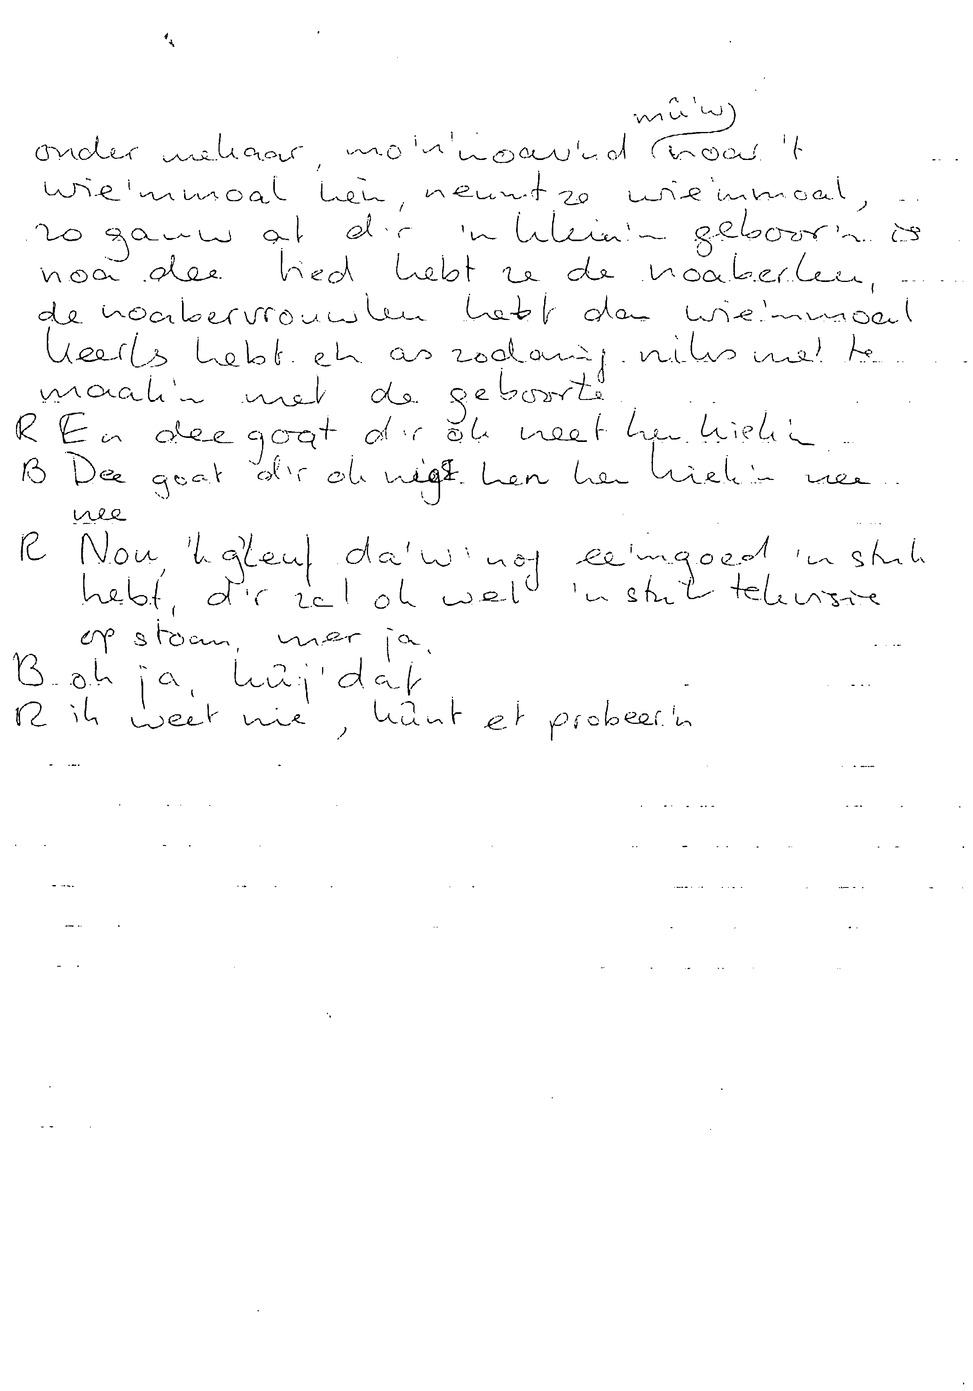 mû'w)
onder mekaar, mo'n'noav'nd (noar 't
wie'mmoal hen, neumt ze wie'mmoal,
zo gauw at d'r 'n klein'n geboor'n is
noa dee tied hebt ze de noaberleu,
de noabervrouwleu hebt dan wie'mmoal
keerls hebt eh as zodanig niks met te
maak'n met de geboorte
R En dee goat d'r ôk neet hen kiek'n
B Dee goat d'r ok niet hen hen kiek'n nee
nee
R Nou, 'k gleuf da'w' nog ee'mgoed 'n stuk
hebt, d'r zal ok wel 'n stuk televisie
op stoan, mer ja,
B oh ja, kûj' dat
R ik weet nie, kûnt et probeer'n